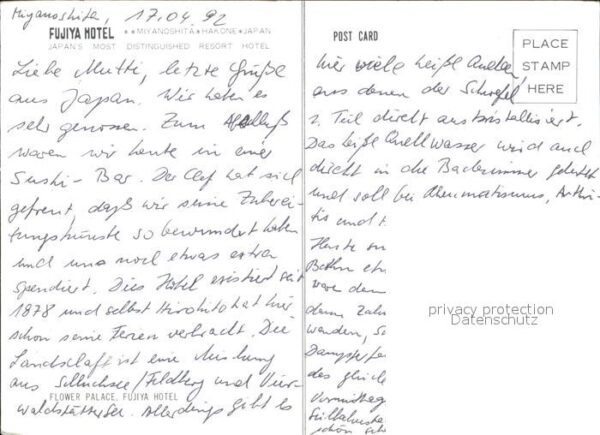 Miyanoshita, 17.04.92
FUJIYA HOTEL ★★MIYANOSHITA★HAKONE★JAPAN
JAPAN'S MOST DISTINGUISHED RESORT HOTEL
Liebe Mutti, letzte Grüße
aus Japan. Wir haben es
sehr genossen. Zum
waren wir heute in einer
Sushi-Bar. Der Chef hat sich
gefreut, daß wir seine Zuberei-
tungskünste so bewundert haben
und uns noch etwas extra
spendiert. Dies Hotel existiert seit
1878 und selbst Hirohito hat hier
schon seine Ferien verbracht. Die
Landschaft ist eine Mischung
aus Schluchsee/Feldberg und Vier-
FLOWER PALACE, FUJIYA HOTEL
waldstättersee. Allerdings gibt es
POST CARD
PLACE
STAMP
HERE
hier viele heiße Quellen,
aus denen der Schwefel
z. Teil direkt auskristallisiert.
Das heiße Quellwasser wird auch
direkt in die Badezimmer geleitet
und soll bei Rheumatismus, Arthri-
tis und
Heute
Betten
war
dem Zahn
wanden,
des
Vormittag
schön
privacy protection
Datenschutz